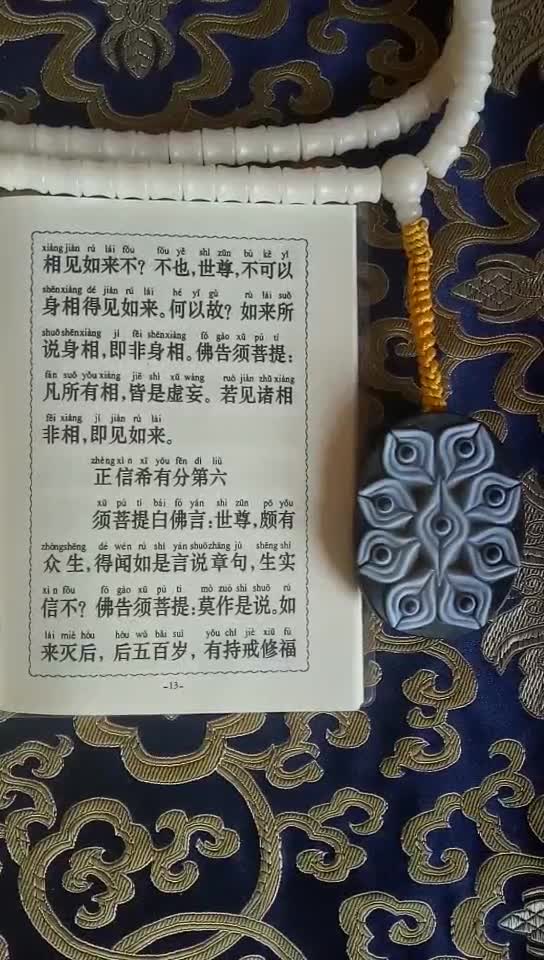 xiāng jiàn rú lái fǒu fǒu yě shì zūn bù kě yǐ
相见如来不？不也，世尊，不可以
shēn xiàng dé jiàn rú lái hé yǐ gù rú lái suǒ
身相得见如来。何以故？如来所
shuō shēn xiàng jí fēi shēn xiàng fó gào xū pú tí
说身相，即非身相。佛告须菩提：
fán suǒ yǒu xiàng jiē shì xū wàng ruò jiàn zhū xiàng
凡所有相，皆是虚妄。若见诸相
fēi xiàng jí jiàn rú lái
非相，即见如来。
zhèng xìn xī yǒu fēn dì liù
正信希有分第六
xū pú tí bái fó yán shì zūn pō yǒu
须菩提白佛言：世尊，颇有
zhòng shēng dé wén rú shì yán shuō zhāng jù shēng shí
众生，得闻如是言说章句，生实
xìn fǒu fó gào xū pú tí mò zuò shì shuō rú
信不？佛告须菩提：莫作是说。如
lái miè hòu hòu wǔ bǎi suì yǒu chí jiè xiū fú
来灭后，后五百岁，有持戒修福
-13-